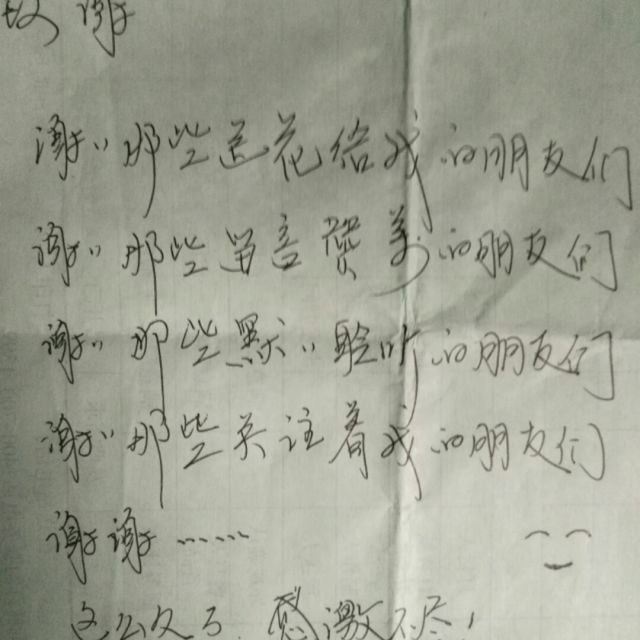 致谢
谢谢那些送花给我的朋友们
谢谢那些留言赞美的朋友们
谢谢那些默默聆听的朋友们
谢谢那些关注着我的朋友们
谢谢……
这么久了,感激不尽!